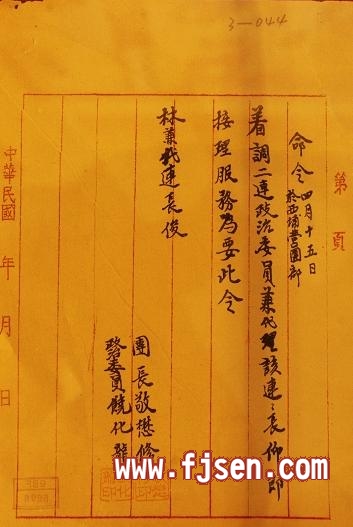 3-044
第 頁
命令 四月十五日
於西埔營團部
着調二連政治委員兼代理該連々長仰即
接理服務為要此令
林兼代連長俊
團長敬懋修
政治委員饒化龍
中華民國 年 月 日
www.fjsen.com